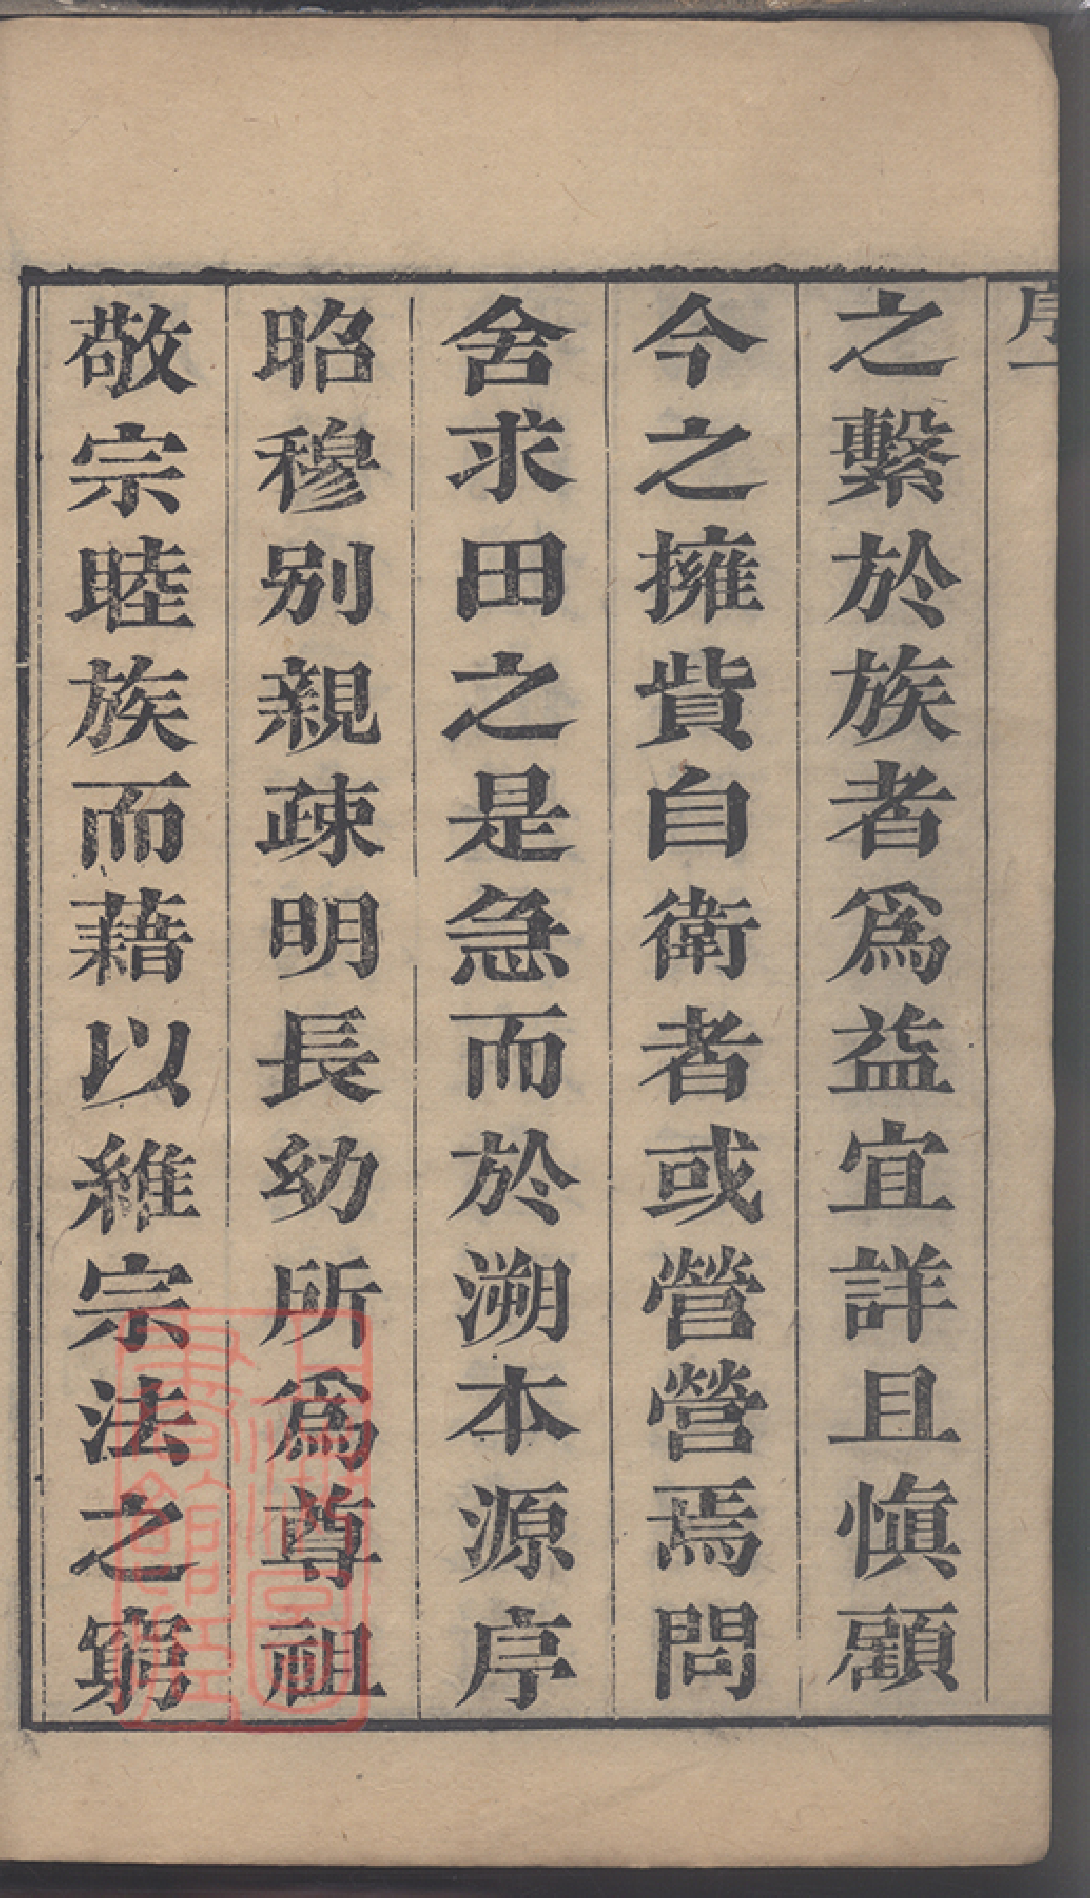 序一
之繫於族者爲益宜詳且愼顧
今之擁貲自衛者或營營焉問
舍求田之是急而於溯本源序
昭穆别親疎明長幼所爲尊祖
敬宗睦族而藉以維宗法之窮
上海圖
書館藏